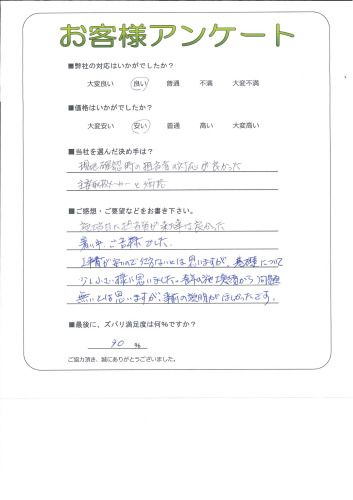 お客様アンケート
■弊社の対応はいかがでしたか？
大変良い 良い 普通 不満 大変不満
■価格はいかがでしたか？
大変安い 安い 普通 高い 大変高い
■当社を選んだ決め手は？
現地確認時の担当者の対応が良かった
■ご感想・ご要望などをお書き下さい。
施工当日の担当者が大変良かった
暑い中、ご苦労様でした。
工事費が安いので仕方ないとは思いますが、基礎について
少し小さい様に思いました。
無いとは思いますが、事前の説明がほしかったです。
■最後に、ズバリ満足度は何％ですか？
90 ％
ご協力頂き、誠にありがとうございました。